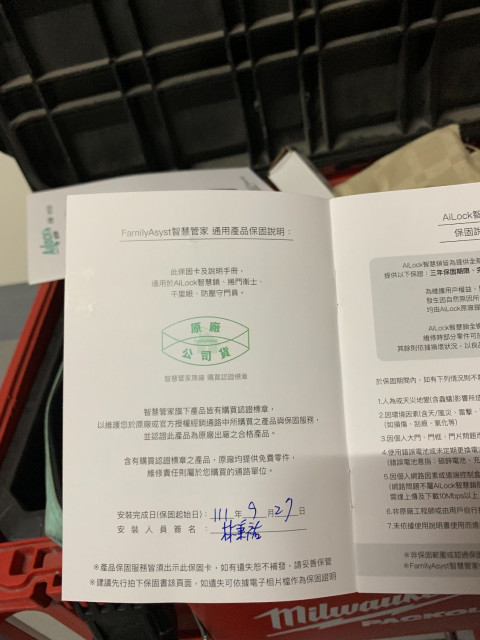 FamilyAsyst智慧管家 通用產品保固說明：
此保固卡及說明手冊，
適用於AiLock智慧鎖、捲門衛士、
千里眼、防壓守門員。
原廠
公司貨
智慧管家原廠 購買認證標章
智慧管家旗下產品皆有購買認證標章，
以維護您於原廠或官方授權經銷通路中所購買之產品與保固服務，
並認證此產品為原廠出廠之合格產品。
含有購買認證標章之產品，原廠均提供免費零件，
維修責任則屬於您購買的通路單位。
安裝完成日(保固起始日)：111年9月27日
安裝人員簽名：林秉祐
＊產品保固服務皆須出示此保固卡，如有遺失恕不補發，請妥善保管
＊建議先行拍下保固書該頁面，如遺失可依據電子相片檔作為保固證明
AiLock智
保固說
AiLock智慧鎖皆為提供全
提供以下保證：三年保固期限、
為維護用戶權益，
發生因自然原因所
均由AiLock原廠
AiLock智慧鎖全
維修時部分零件可
其餘則依據損壞狀況，以良品
於保固期間內，如有下列情況則不
1.人為或天災地變(含蟲蟻)影響所造
2.因環境因素(含天/風災、雷擊、
(如損傷、刮痕、氧化等)
3.因個人大門、門框、門片問題
4.使用錯誤電池或未定期更換電
(錯誤電池意指：碳鋅電池、充
5.因個人網路因素或遠端控制盒
(網路問題不屬AiLock智慧鎖
需線上傳及下載10Mbps以上
6.非原廠工程師或由用戶自行
7.未依據使用說明書使用而造
＊非保固範圍或超過保固
＊FamilyAsyst智慧管家
AiLock
Milwaukee
PACKOU